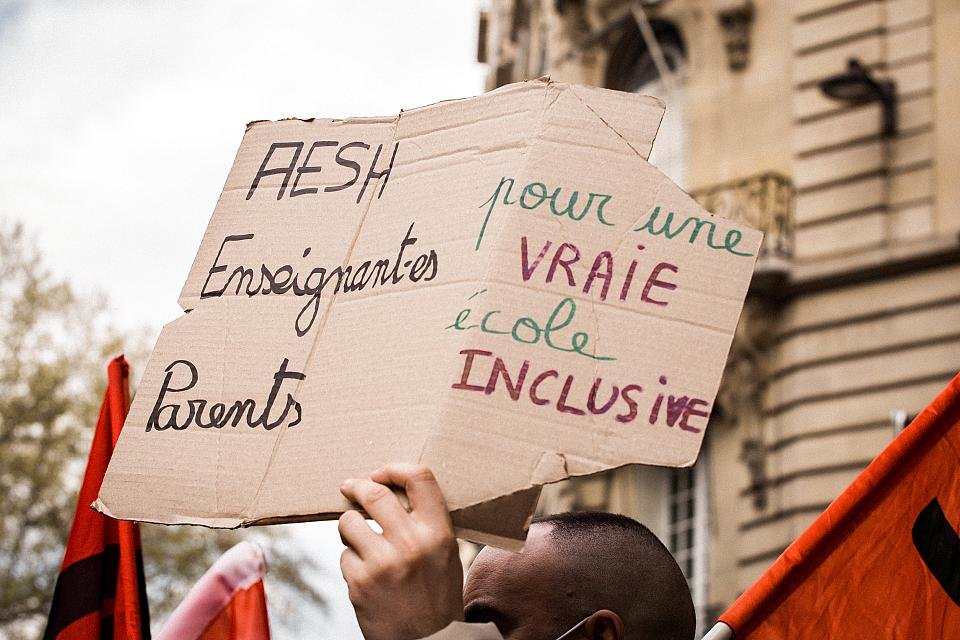 AESH
Enseignant·es
Parents
pour une
VRAiE
école
INCLUSiVE